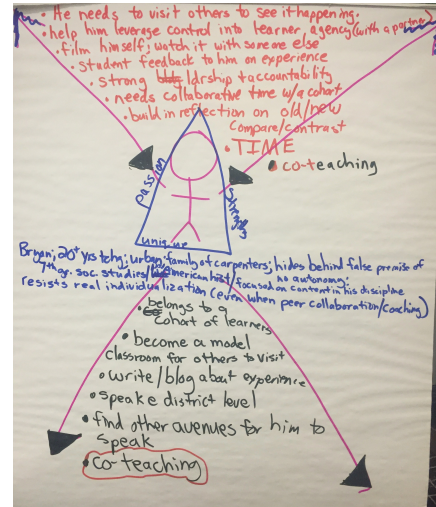 • He needs to visit others to see it happening.
• help him leverage control into learner agency (with a partner)
• film himself; watch it with someone else
• student feedback to him on experience
• strong ldrship + accountability
• needs collaborative time w/a cohort
• build in reflection on old/new
Compare/contrast
• TIME
• co-teaching
passion
strengths
unique
Bryan; 20+ yrs tchg; urban; family of carpenters; hides behind false premise of
no autonomy;
7th gr. soc. studies/American hist/focused on content in his discipline
resists real individualization (even when peer collaboration/coaching)
• belongs to a
cohort of learners
• become a model
classroom for others to visit
• write/blog about experience
• speak @ district level
• find other avenues for him to
speak
• co-teaching